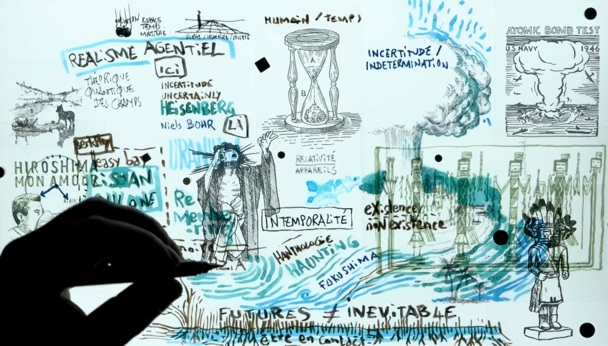 ESPACE
TEMPS
MATIÈRE
HUMAIN / TEMPS
ATOMIC BOMB TEST
US NAVY 1946
RÉALISME AGENTIEL
INCERTITUDE /
INDETERMINATION
ICI
THÉORIQUE
QUANTIQUE
DES CHAMPS
INCERTITUDE
UNCERTAINLY
HEISENBERG
NIELS BOHR
LÀ
A
B
Berkley
HIROSHIMA
MON AMOU
easy ba
URANIU
RELATIVITÉ
APPAREILS
Re
Me
existence
non existence
INTEMPORALITÉ
HANTOLOGIE
HAUNTING
FUKUSHIMA
FUTURES ≠ INEVITABLE
être en contact